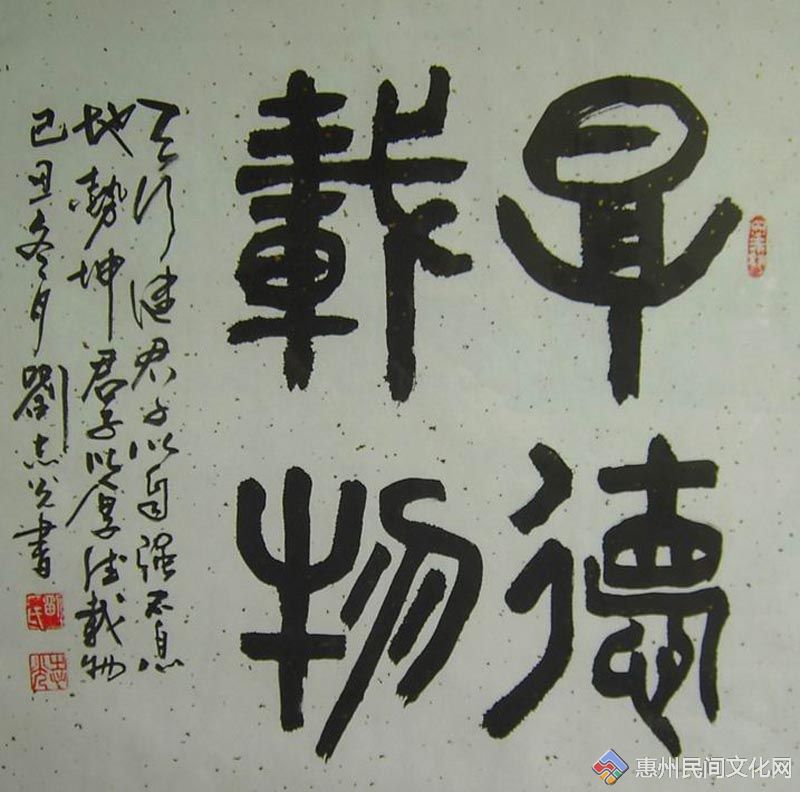 厚德
載物
天行健君子以自强不息
地勢坤君子以厚德載物
己丑冬月劉志光書
劉氏
志光
惠州民间文化网